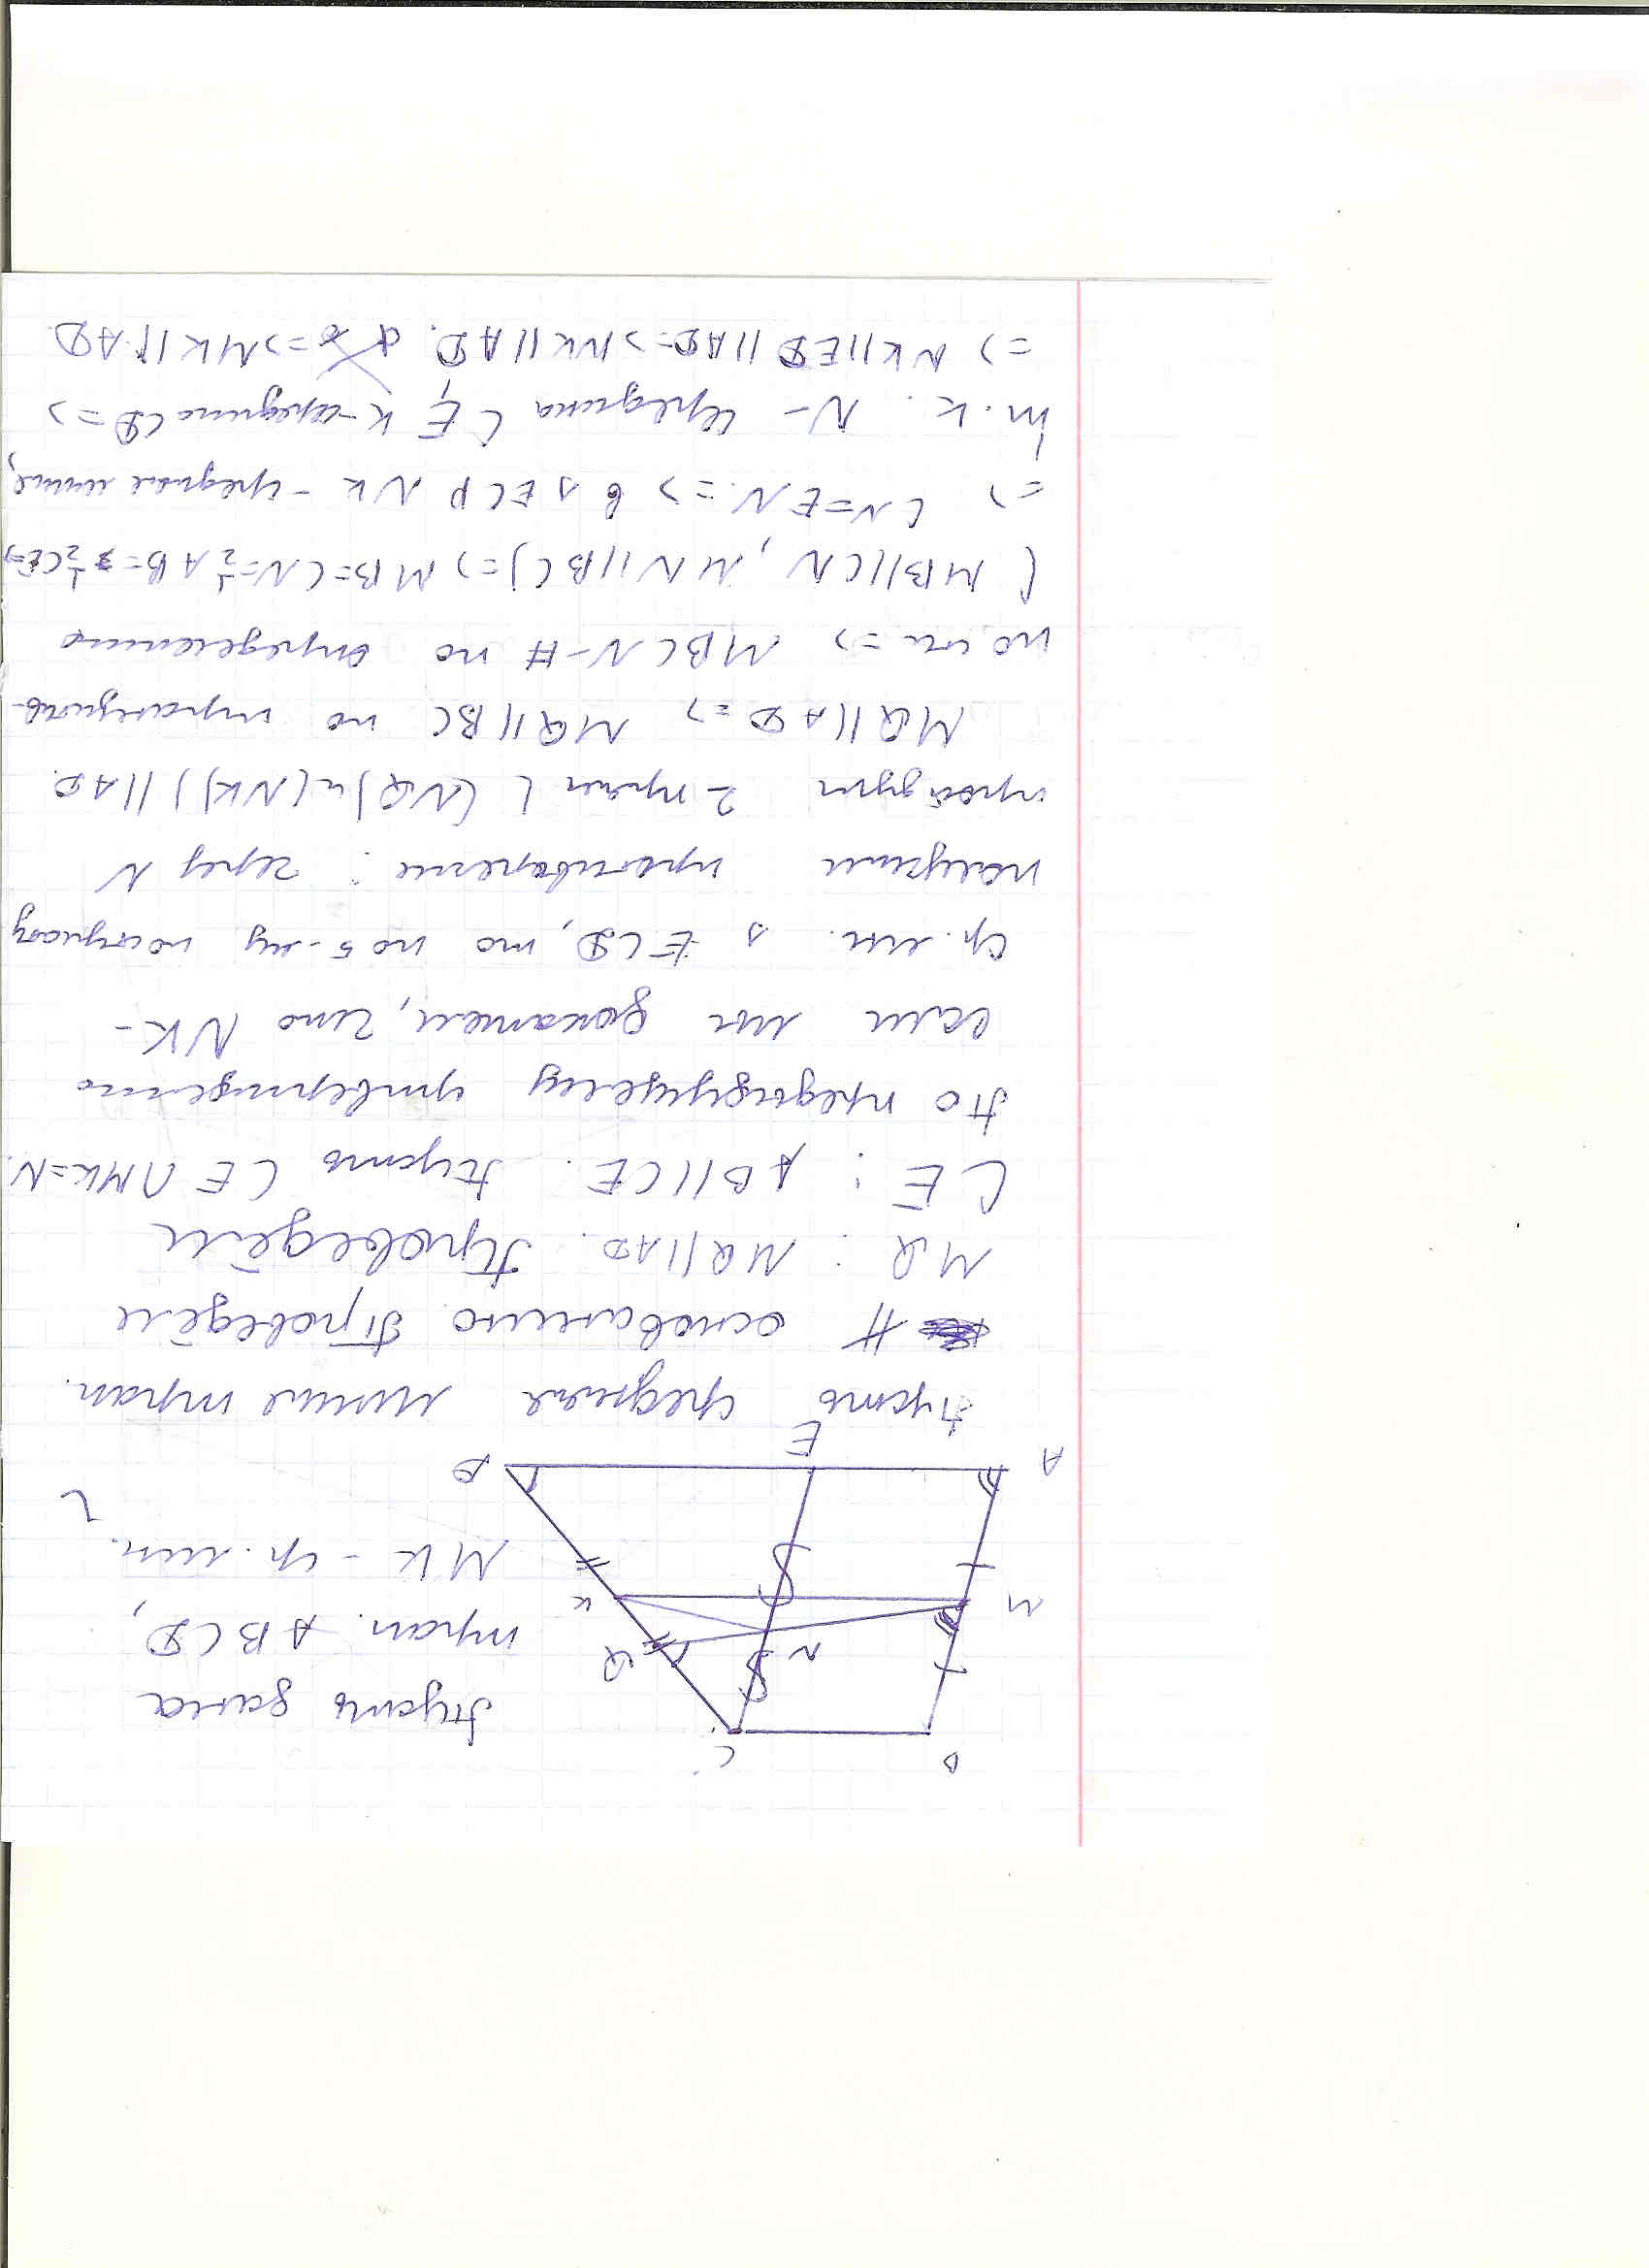 B
C
Пусть дана
трап. ABCD,
MK - ср. лин.
M
N
Q
K
A
E
D
Пусть средняя линия трап.
∦ основанию. Проведём
MQ : MQ || AD. Проведём
CE : AB || CE. Пусть CE ∩ MK = N.
По предыдущему утверждению
если мы докажем, что NK -
ср. лин. Δ ECD, то по 5-му постулату
получим противоречие : через N
пройдут 2 прям ( (NQ) и (NK) ) || AD.
MQ || AD => MQ || BC по транзитив-
ности => MBCN - # по определению
( MB || CN, MN || BC ) => MB = CN = ½ AB = ½ CE =>
=> CN = EN. => в Δ ECD NK - средняя линия,
т.к. N - середина CE, K - середина CD =>
=> NK || ED || AD => NK || AD. => MK || AD